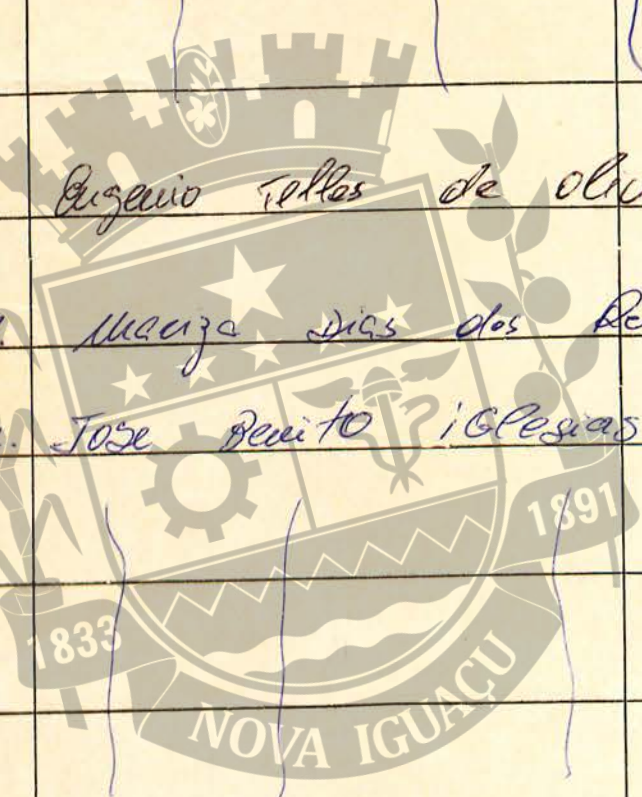 Eugenio Telles de oliv
Mariza Dias dos Re
Jose Benito iGlesias
1891
1833
NOVA IGUAÇU